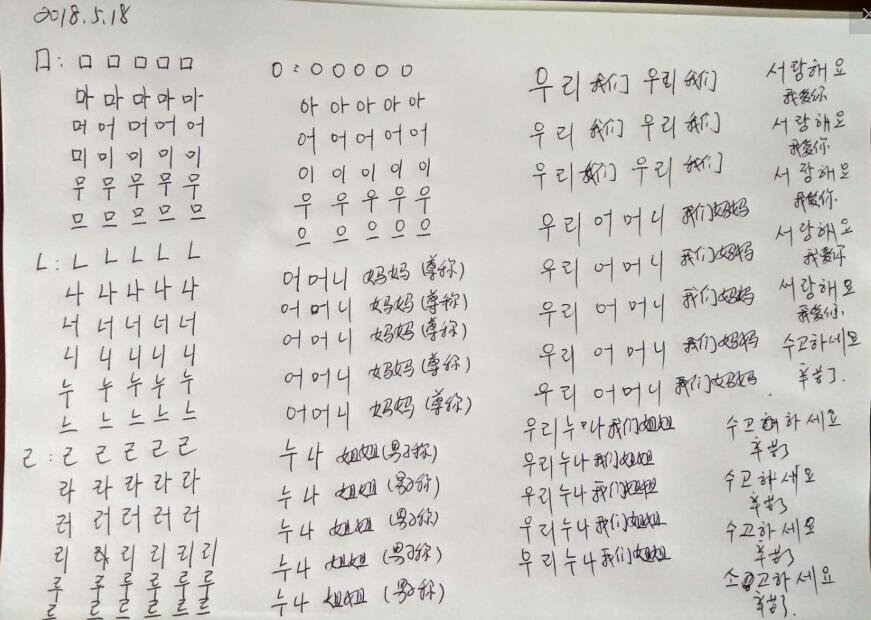 2018.5.18
ㅁ: ㅁ ㅁ ㅁ ㅁ ㅁ
마 마 마 마 마
머 머 머 머 머
미 미 미 미 미
무 무 무 무 무
므 므 므 므 므
ㄴ: ㄴ ㄴ ㄴ ㄴ ㄴ
나 나 나 나 나
너 너 너 너 너
니 니 니 니 니
누 누 누 누 누
느 느 느 느 느
ㄹ: ㄹ ㄹ ㄹ ㄹ ㄹ
라 라 라 라 라
러 러 러 러 러
리 리 리 리 리
루 루 루 루 루
르 르 르 르 르
ㅇ: ㅇ ㅇ ㅇ ㅇ ㅇ
아 아 아 아 아
어 어 어 어 어
이 이 이 이 이
우 우 우 우 우
으 으 으 으 으
어머니 妈妈(尊称)
어머니 妈妈(尊称)
어머니 妈妈(尊称)
어머니 妈妈(尊称)
어머니 妈妈(尊称)
누나 姐姐(男子称)
누나 姐姐(男子称)
누나 姐姐(男子称)
누나 姐姐(男子称)
누나 姐姐(男子称)
우리 我们 우리 我们
우리 我们 우리 我们
우리 我们 우리 我们
우리 어머니 我们妈妈
우리 어머니 我们妈妈
우리 어머니 我们妈妈
우리 어머니 我们妈妈
우리 어머니 我们妈妈
우리누나 我们姐姐
우리누나 我们姐姐
우리누나 我们姐姐
우리누나 我们姐姐
우리누나 我们姐姐
서랑해요
我爱你
서랑해요
我爱你.
서랑해요
我爱你.
서랑해요
我爱你
서랑해요
我爱你.
수고하세요
辛苦了.
수고하세요
辛苦了
수고하세요
辛苦了
수고하세요
辛苦了
소고하세요
辛苦了.